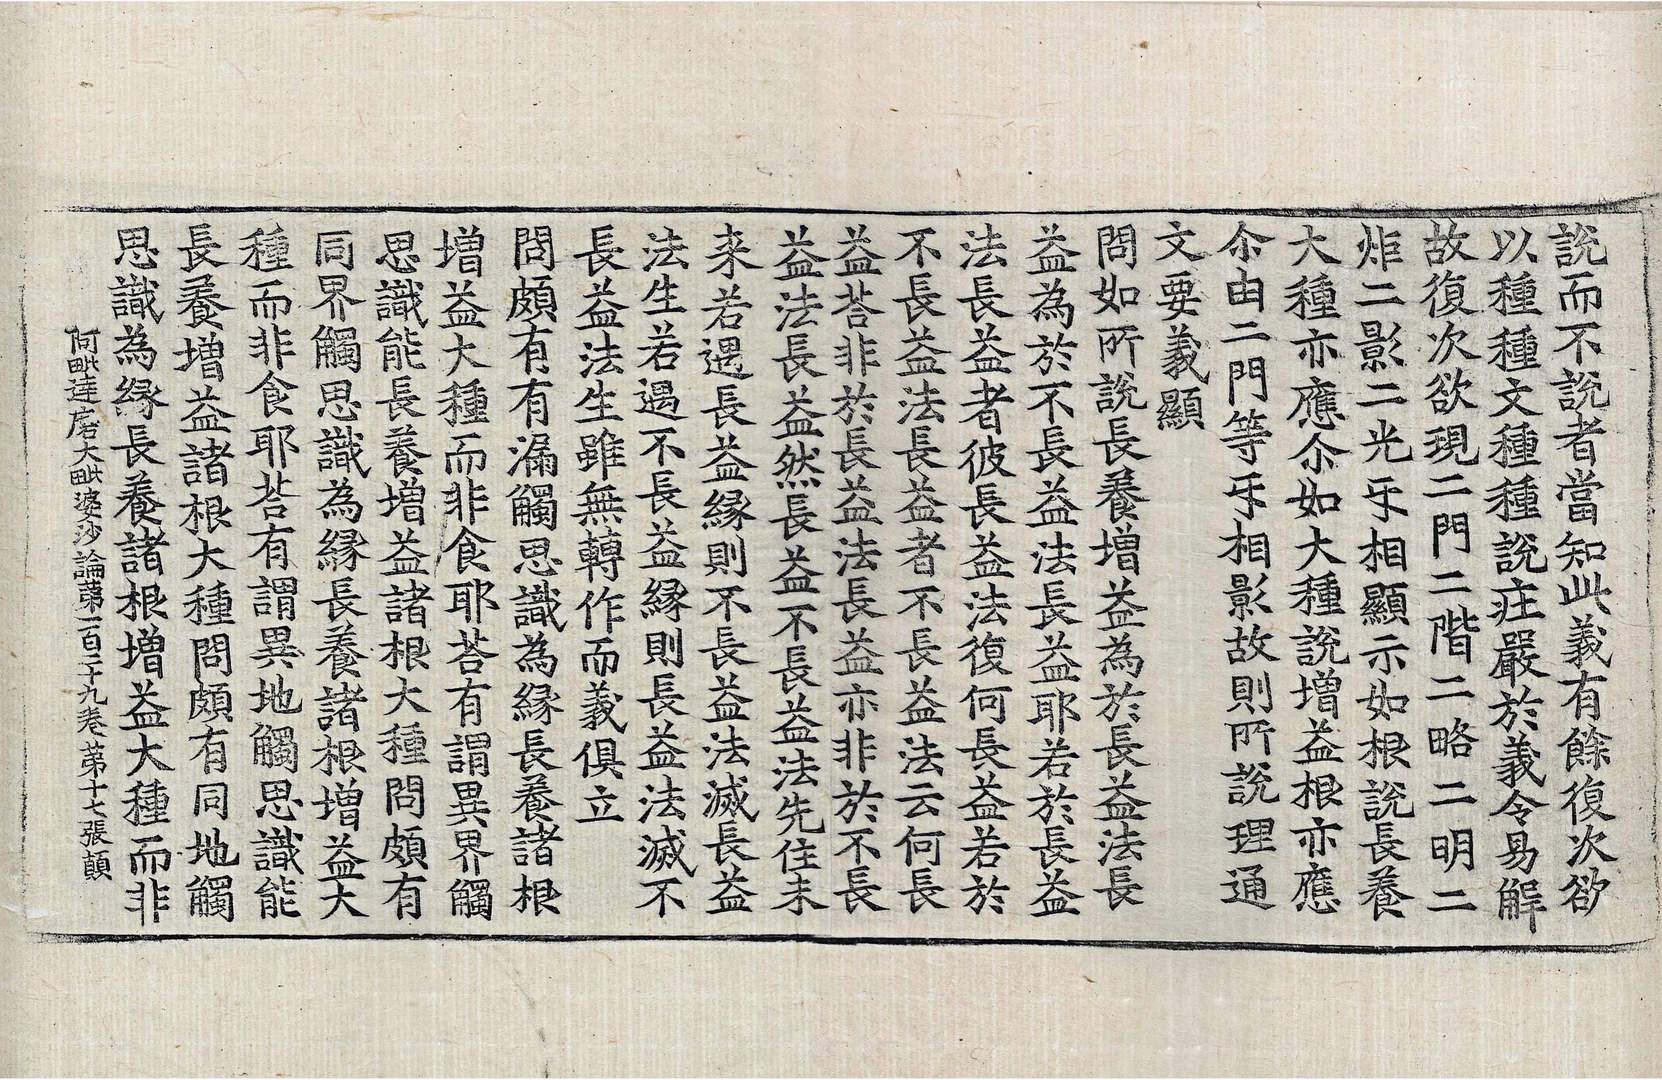 說而不說者當知此義有餘復次欲
以種種文種種說莊嚴於義令易解
故復次欲現二門二階二略二明二
炬二影二光𤓰相顯示如根說長養
大種亦應尒如大種說增益根亦應
尒由二門等𤓰相影故則所說理通
文要義顯
問如所說長養增益為於長益法長
益為於不長益法長益耶若於長益
法長益者彼長益法復何長益若於
不長益法長益者不長益法云何長
益荅非於長益法長益亦非於不長
益法長益然長益不長益法先住未
来若遇長益緣則不長益法滅長益
法生若遇不長益緣則長益法滅不
長益法生雖無轉作而義俱立
問頗有有漏觸思識為緣長養諸根
增益大種而非食耶荅有謂異界觸
思識能長養增益諸根大種問頗有
同界觸思識為緣長養諸根增益大
種而非食耶荅有謂異地觸思識能
長養增益諸根大種問頗有同地觸
思識為緣長養諸根增益大種而非
阿毗達磨大毗婆沙論苐一百二十九卷 苐十七張 顛